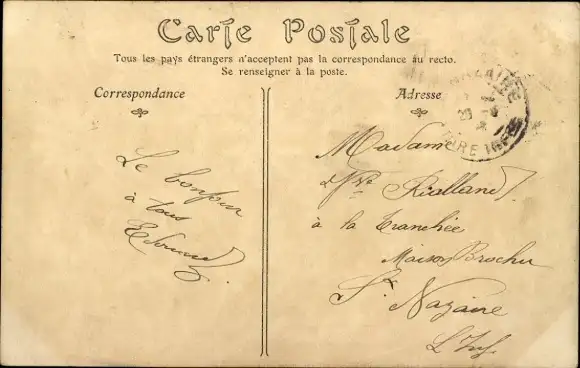 Carte Postale
Tous les pays étrangers n'acceptent pas la correspondance au recto.
Se renseigner à la poste.
Correspondance
Le bonjour
à tous
Edouard
Adresse
Madame
Vve Rialland
à la Tranchée
Maison Brochu
St Nazaire
L. Inf.